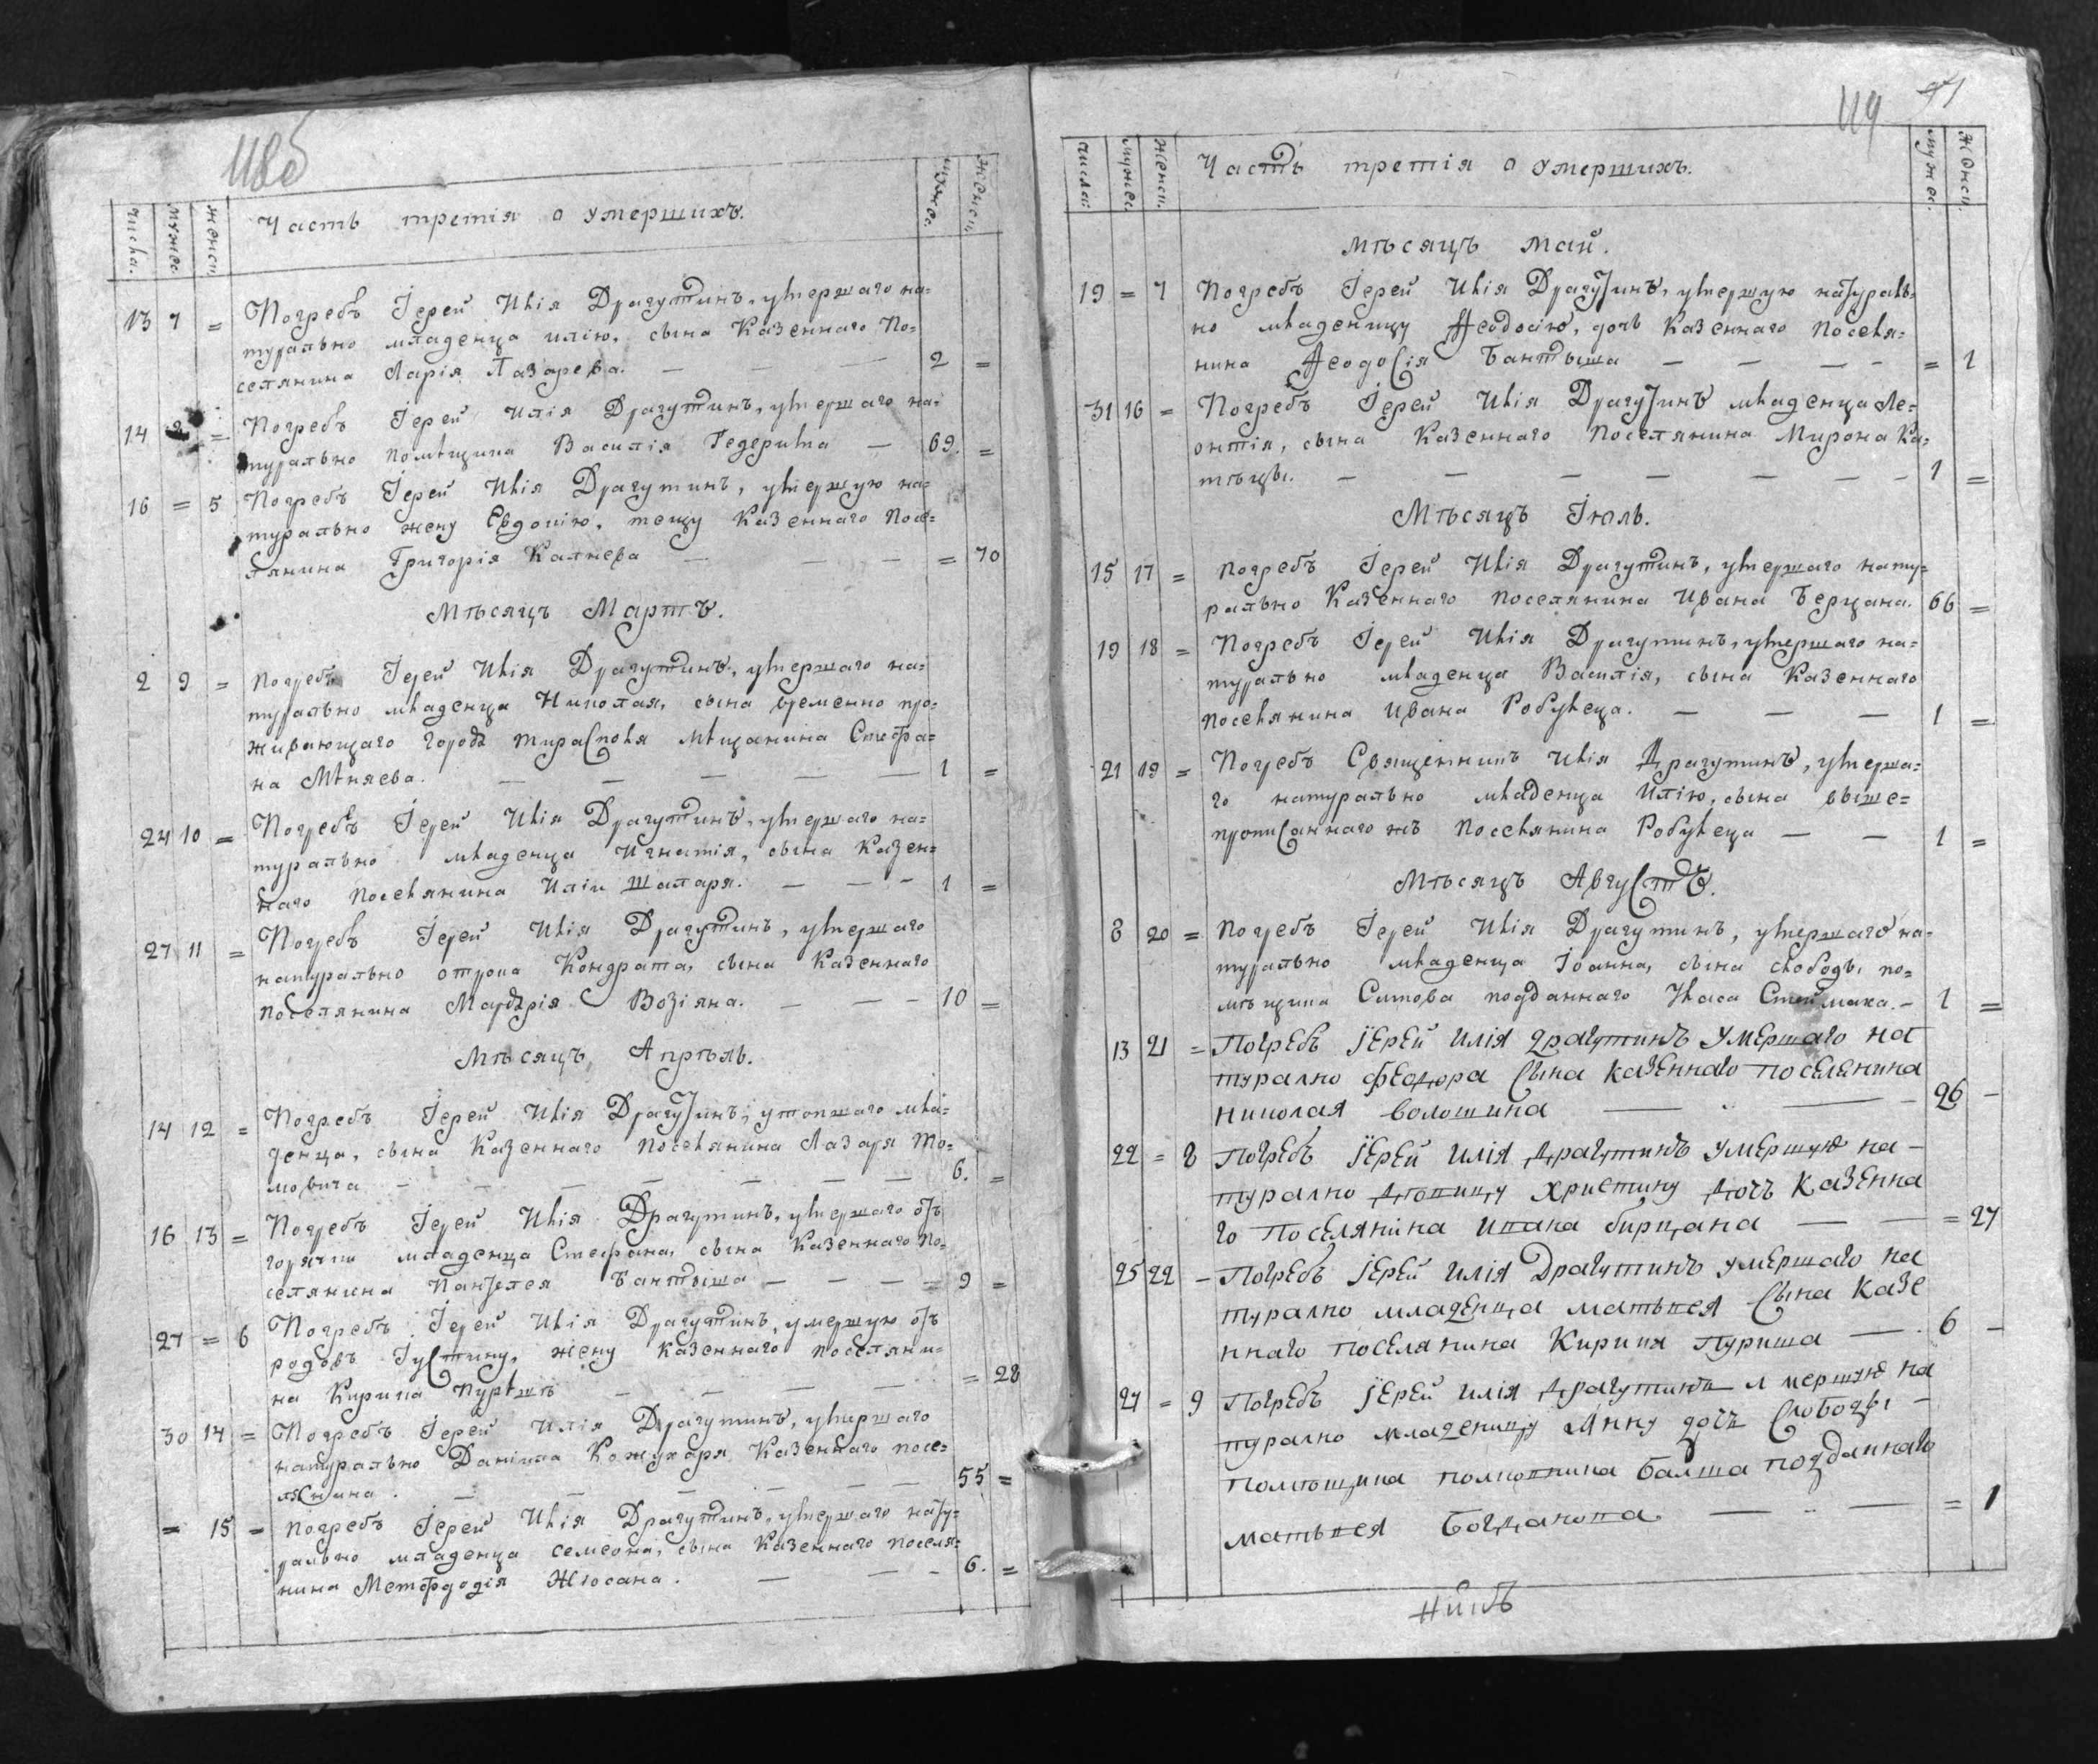 118об
числа. мужес. женск. Часть третія о умершихъ. мужес. женск.
13 7 = Погребъ Іерей Илія Драгутинъ, умершаго на=
турально младенца илію, сына Казеннаго По=
селянина Ларія Лазарева. — — — 2 =
14 8 = Погребъ Іерей Илія Драгутинъ, умершаго на=
турально помѣщика Василія Гедерима — 69. =
16 = 5 Погребъ Іерей Илія Драгутинъ, умершую на=
турально жену Евдокію, тещу Казеннаго Посе=
лянина Григорія Калнева — — — = 70
Мѣсяцъ Мартъ.
2 9 = Погребъ Іерей Илія Драгутинъ, умершаго на=
турально младенца Николая, сына временно про=
живающаго города тирасполя мѣщанина Стефа=
на Миняева. — — — — — 1 =
24 10 = Погребъ Іерей Илія Драгутинъ, умершаго на=
турально младенца Игнатія, сына Казен=
наго Поселянина Иліи шаларя. — — — 1 =
27 11 = Погребъ Іерей Илія Драгутинъ, умершаго
натурально отрока Кондрата, сына Казеннаго
Поселянина Возіяна. — — — 10 =
Мѣсяцъ Апрѣль.
14 12 = Погребъ Іерей Илія Драгутинъ, утопшаго мла=
денца, сына Казеннаго Поселянина Лазаря То=
мовича — — — — — — — 6. =
16 13 = Погребъ Іерей Илія Драгутинъ, умершаго отъ
горячки младенца Стефана, сына Казеннаго По=
селянина Пантелея Бантыша — — — = 9 =
27 = 6 Погребъ Іерей Илія Драгутинъ, умершую отъ
родовъ Іустину, жену казеннаго поселяни=
на Кирила — — — — = 28
30 14 = Погребъ Іерей Илія Драгутинъ, умершаго
натурально Даніила Кожухаря Казеннаго посе=
лянина. — — — — — — 55 =
= 15 = Погребъ Іерей Илія Драгутинъ, умершаго нату=
рально младенца семеона, сына Казеннаго поселя=
нина Жіосана. — — — 6. =
119
числа: мужес. женск. Часть третія о умершихъ. мужес. женск.
Мѣсяцъ Май.
19 = 7 Погребъ Іерей Илія Драгутинъ, умершую натураль=
но младеницу Феодосію, дочь Казеннаго Поселя=
нина Феодосія Бантыша — — — — = 1
31 16 = Погребъ Іерей Илія Драгутинъ младенца Ле=
онтія, сына Казеннаго Поселянина Мирона Ка=
— — — — — — — 1 =
Мѣсяцъ Іюль.
15 17 = Погребъ Іерей Илія Драгутинъ, умершаго нату=
рально Казеннаго Поселянина Ивана Берцана. 66 =
19 18 = Погребъ Іерей Илія Драгутинъ, умершаго на=
турально младенца Василія, сына Казеннаго
Поселянина Ивана Робулеца. — — — 1 =
21 19 = Погребъ Священникъ Илія Драгутинъ, умерша=
го натурально младенца Илію, сына выше=
прописаннаго жъ Поселянина Робулеца — — 1 =
Мѣсяцъ Августъ.
8 20 = Погребъ Іерей Илія Драгутинъ, умершаго на=
турально младенца Іоанна, сына слободы по=
мѣщика Ситова подданнаго Стеймака. — 1 =
13 21 = Погребъ Іерей Илія Драгутинъ умершаго на
турално феодора сына казеннаго поселянина
николая волошина — — — 26 —
22 = 8 Погребъ Іерей Илія Драгутинъ умершую на —
турално дѣвицу христину дочъ казенна
го поселянина ивана бирцана — — = 27
25 22 — Погребъ Іерей Илія Драгутинъ умершаго на
турално младенца матвея сына казе
ннаго поселянина Кирила Пуриша — 6 —
27 = 9 Погребъ Іерей Илія Драгутинъ умершую на
турално младеницу Анну дочъ слободы —
помѣщика полковника Балша подданнаго
матвея Богданова. — — — = 1